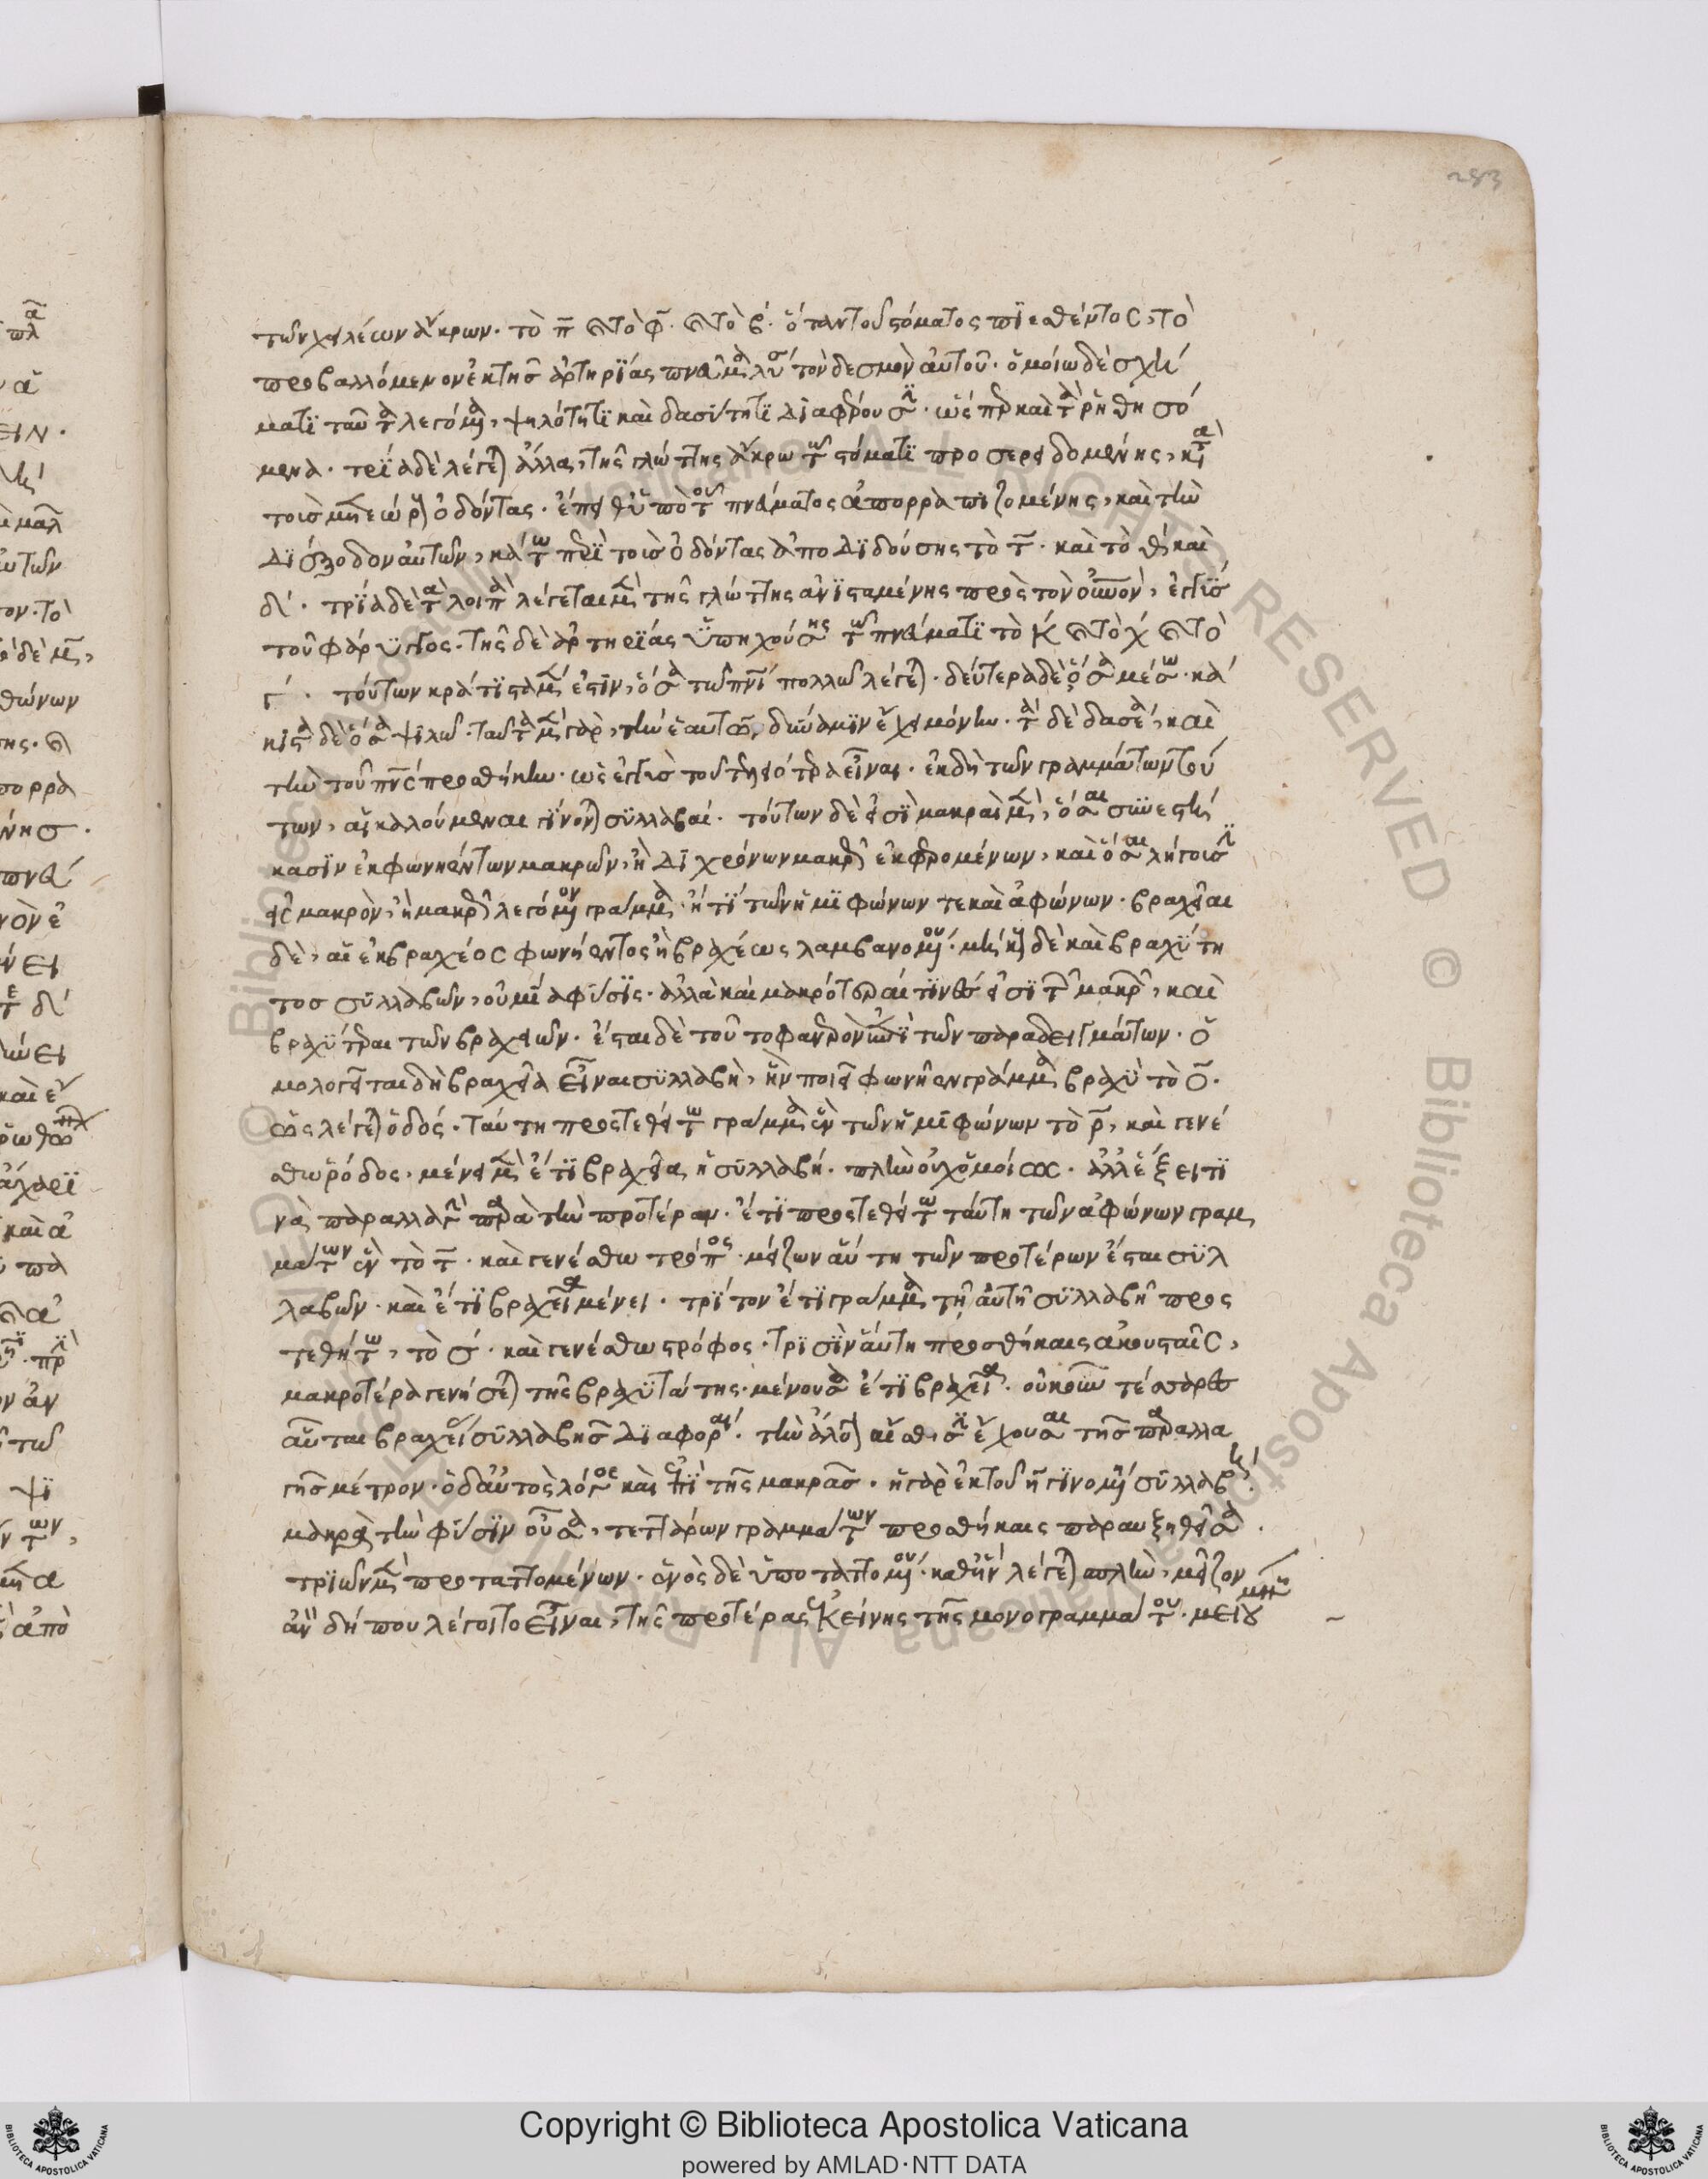 283
τῶν χειλέων ἄκρων. τὸ π̄ καὶ τὸ φ̄. καὶ τὸ β. ὅταν τοῦ στόματος πιεσθέντος, τὸ
προβαλλόμενον ἐκ τῆς ἀρτηρίας πνεῦμα λύσῃ τὸν δεσμὸν αὐτοῦ. ὁμοίω δὲ σχή
ματι ταῦτα λεγόμενα, ψιλότητι καὶ δασύτητι διαφέρουσιν. ὥσπερ καὶ τὰ ῥηθησό
μενα. τρία δὲ λέγεται ἄλλα, τῆς γλώττης ἄκρω τῶ στόματι προσερειδομένης, κατὰ
τοὺς μετεώρους ὀδόντας. ἔπειθ' ὑπὸ τοῦ πνεύματος ἀπορραπιζομένης, καὶ τὴν
διέξοδον αὐτῶν, κάτω περὶ τοὺς ὀδόντας ἀποδιδούσης τὸ τ̄. καὶ τὸ θ καὶ
δ. τρία δὲ τὰ λοιπὰ λέγεται μὲν τῆς γλώττης ἀνισταμένης πρὸς τὸν οὐρανὸν, ἐγγὺς
τοῦ φάρυγγος. τῆς δὲ ἀρτηρίας ὑπηχούσης τῶ πνεύματι τὸ κ καὶ τὸ χ καὶ τὸ
γ. τούτων κράτιστα μέν ἐστιν, ὅσα τῶ πνεύματι πολλῶ λέγεται. δεύτερα δὲ ὅσα μέσω. κά
κιστα δὲ ὅσα ψιλῶ. ταῦτα μὲν γὰρ, τὴν ἑαυτῶν δύναμιν ἔχει μόνην. τὰ δὲ δασέα, καὶ
τὴν τοῦ πνεύματος προσθήκην. ὡς ἐγγὺς τοῦ τελειότερα εἶναι. ἐκ δὴ τῶν γραμμάτων τού
των, αἱ καλούμεναι γίνονται συλλαβαί. τούτων δὲ εἰσὶ μακραὶ μὲν, ὅσαι συνεστή
κασιν ἐκ φωνηέντων μακρῶν, ἢ διχρόνων μακρῶς ἐκφερομένων, καὶ ὅσαι λήγουσιν
εἰς μακρὸν, ἢ μακρῶς λεγόμενον γράμμα. ἤ τι τῶν ἡμιφώνων τε καὶ ἀφώνων. βραχεῖαι
δὲ, αἱ ἐκ βραχέος φωνήεντος ἢ βραχέως λαμβανομένου. μήκους δὲ καὶ βραχύτη
τος συλλαβῶν, οὐ μία φύσις. ἀλλὰ καὶ μακρότεραί τινές εἰσι τῶν μακρῶν, καὶ
βραχύτεραι τῶν βραχειῶν. ἔσται δὲ τοῦτο φανερὸν ἐπὶ τῶν παραδειγμάτων. ὁ
μολογεῖται δὴ βραχεῖα εἶναι συλλαβὴ, ἣν ποιεῖ φωνῆεν γράμμα βραχὺ τὸ ο̄.
ὡς λέγεται ὁδός. ταύτη προστεθείτω γράμμα ἓν τῶν ἡμιφώνων τὸ ρ̄, καὶ γενέ
σθω ῥόδος, μένει μὲν ἔτι βραχεῖα ἡ συλλαβή. πλὴν οὐχ ὁμοίως. ἀλλ' ἕξει τι
νὰ παραλλαγὴν παρὰ τὴν προτέραν. ἔτι προστεθείτω ταύτη τῶν ἀφώνων γραμ
μάτων ἓν τὸ τ̄. καὶ γενέσθω τρόπος. μείζων αὕτη τῶν προτέρων ἔσται συλ
λαβῶν. καὶ ἔτι βραχεῖα μένει. τρίτον ἔτι γράμμα τῆ αὐτῆ συλλαβῆ προσ
τεθήτω, τὸ σ. καὶ γενέσθω στρόφος. τρισὶν αὕτη προσθήκαις ἀκουσταῖς,
μακροτέρα γενήσεται τῆς βραχυτάτης. μένουσα ἔτι βραχεῖα. οὐκοῦν τέσσαρες
αὗται βραχείας συλλαβῆς διαφοραί. τὴν ἄλογον αἴσθησιν ἔχουσαι τῆς παραλλα
γῆς μέτρον. ὁ δ' αὐτὸς λόγος καὶ ἐπὶ τῆς μακρᾶς. ἡ γὰρ ἐκ τοῦ η̄ γινομένη συλλαβή.
μακρὰ τὴν φύσιν οὖσα, τεττάρων γραμμάτων προσθήκαις παραυξηθεῖσα.
τριῶν μὲν προταττομένων. ἑνὸς δὲ ὑποταττομένου. καθ' ἣν λέγεται σπλὴν, μείζων
ἂν δή που λέγοιτο εἶναι, τῆς προτέρας ἐκείνης τῆς μονογραμμάτου.
Copyright © Biblioteca Apostolica Vaticana
powered by AMLAD·NTT DATA